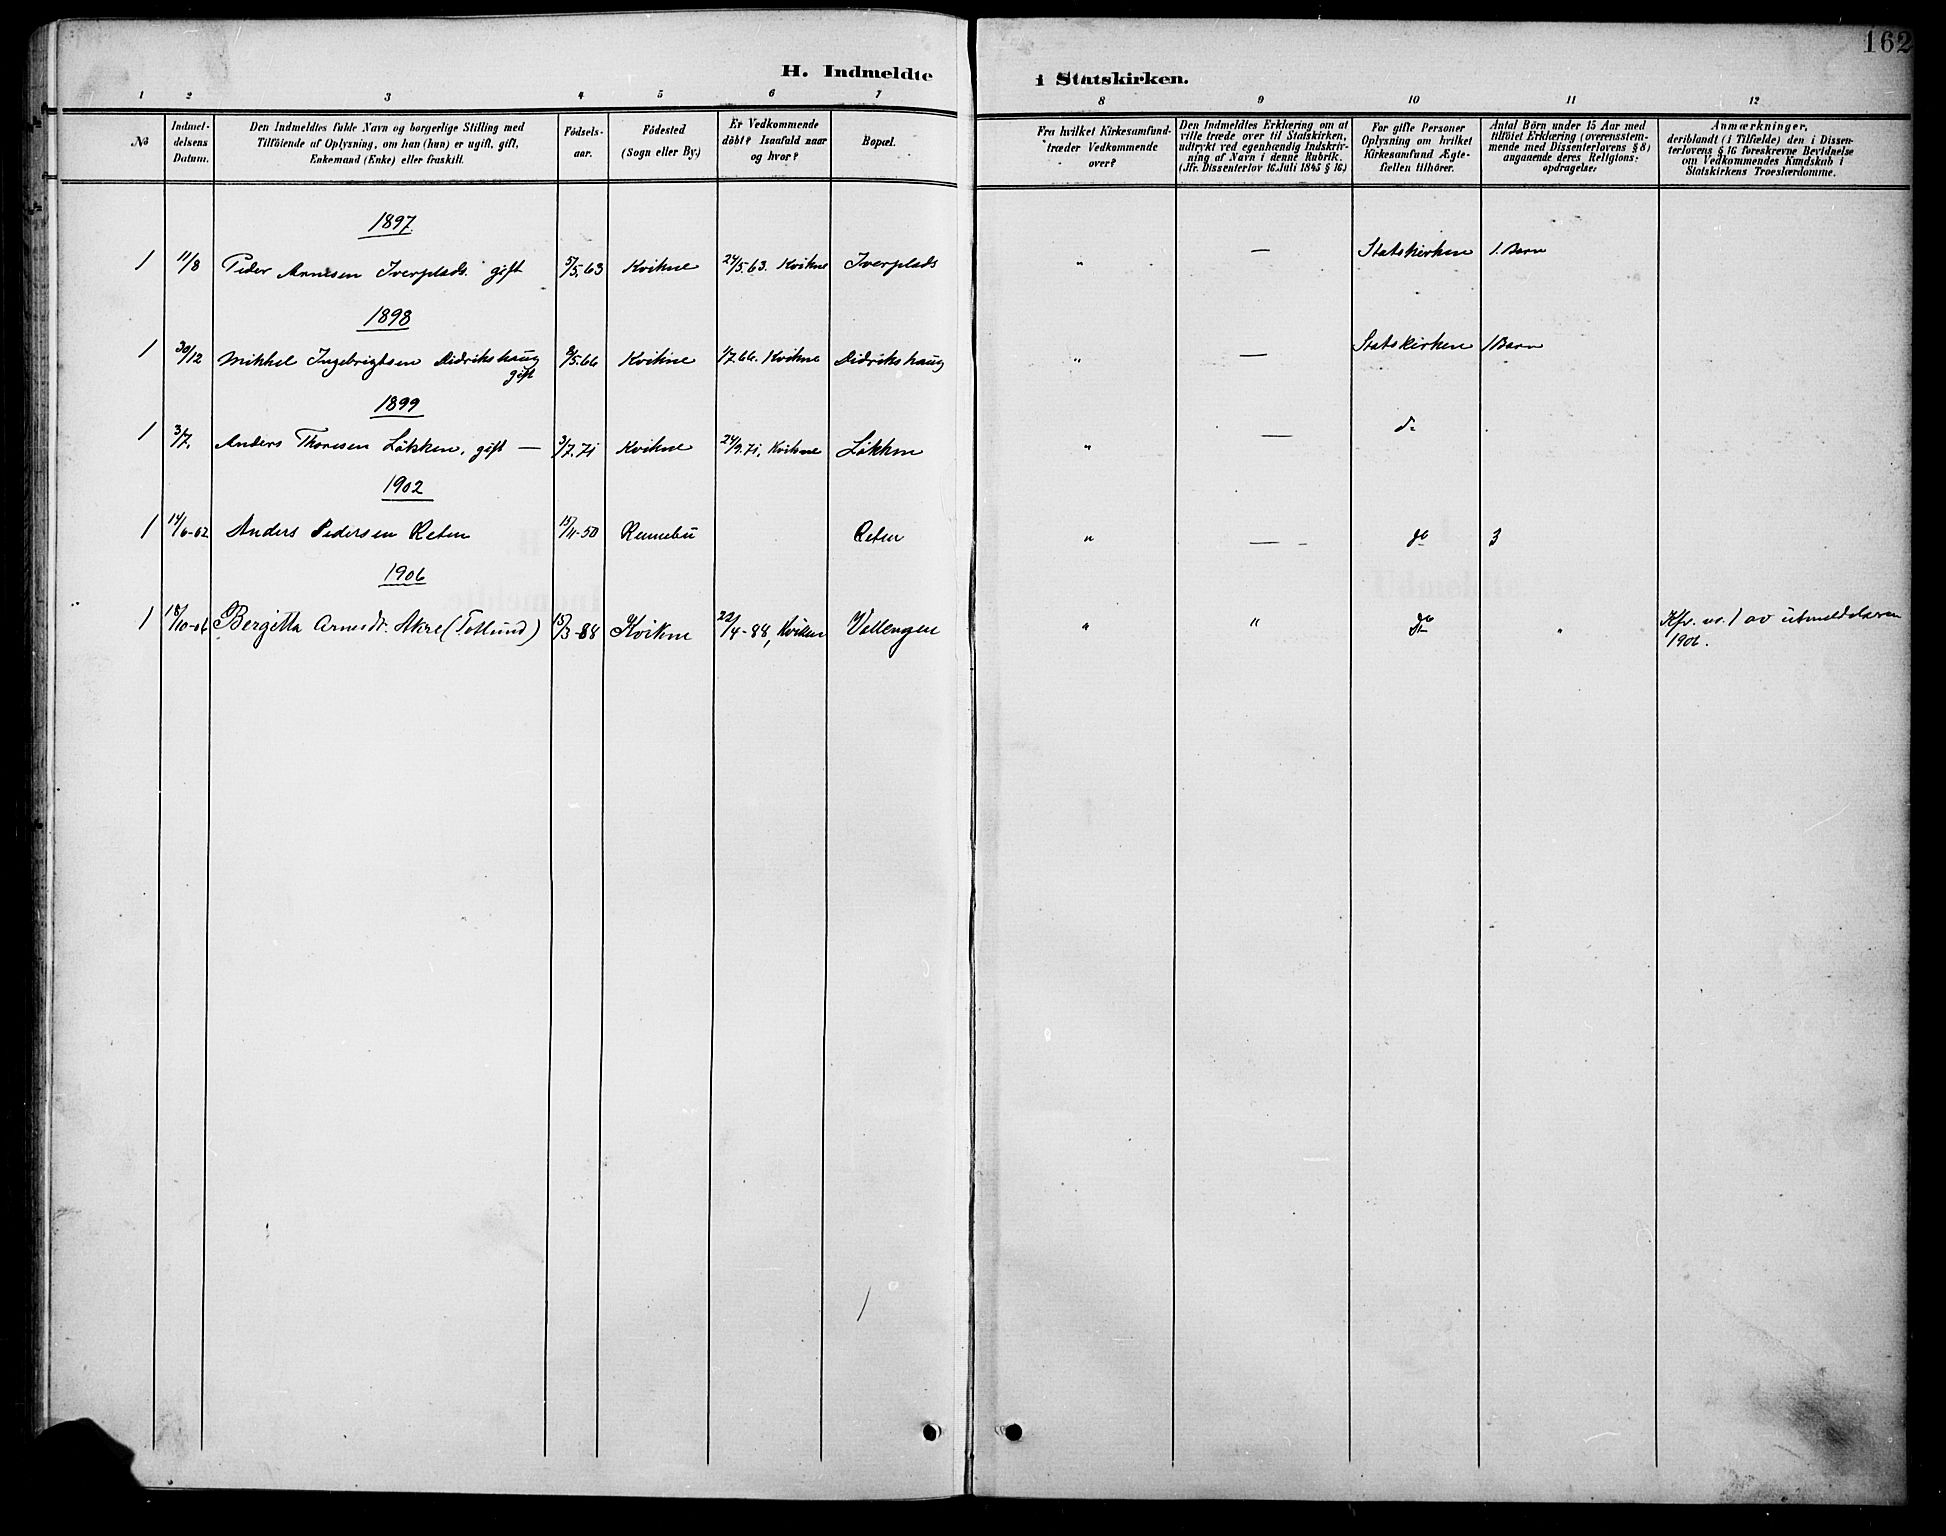 162
H. Indmeldte i Statskirken.
1 2 3 4 5 6 7 8 9 10 11 12
No
Indmel-
delsens
Datum.
Den Indmeldtes fulde Navn og borgerlige Stilling med
Tilföiende af Oplysning, om han (hun) er ugift, gift,
Enkemand (Enke) eller fraskilt.
Födsels-
aar.
Födested
(Sogn eller By.)
Er Vedkommende
döbt? Isaafald naar
og hvor?
Bopæl.
Fra hvilket Kirkesamfund
træder Vedkommende
over?
Den Indmeldtes Erklæring om at
ville træde over til Statskirken,
udtrykt ved egenhændig Indskriv-
ning af Navn i denne Rubrik.
(Jfr. Dissenterlov 16. Juli 1845 § 16.)
For gifte Personer
Oplysning om hvilket
Kirkesamfund Ægte-
fællen tilhörer.
Antal Börn under 15 Aar med
tilföiet Erklæring (overensstem-
mende med Dissenterlovens § 8)
angaaende deres Religions-
opdragelse:
Anmærkninger,
deriblandt (i Tilfælde) den i Dissen-
terlovens § 16 foreskrevne Bevidnelse
om Vedkommendes Kundskab i
Statskirkens Troeslærdomme.
1897
1 11/8 Peder Arnesen Iverplads. gift 5/5.63 Kvikne 24/5.63. Kvikne Iverplads " — Statskirken 1. Barn
1898
1 30/12 Mikkel Ingebrigtsen Didrikshaug 9/5.66 Kvikne 1/7.66. Kvikne Didrikshaug " — Statskirken 1 Barn
gift
1899
1 3/7. Anders Thoresen Lökken, gift — 3/7.71 Kvikne 24/9.71, Kvikne Lökken " — do
1902
1 14/6-02 Anders Pedersen Reten 15/11-50 Rennebu Reten " — do 3
1906
1 18/10-06 Bergitta Arnesdt. Akre (Totlund) 15/3-88 Kvikne 22/4-88, Kvikne Vollengen " " do " Kfr. nr. 1 av utmeldelaren
1906.